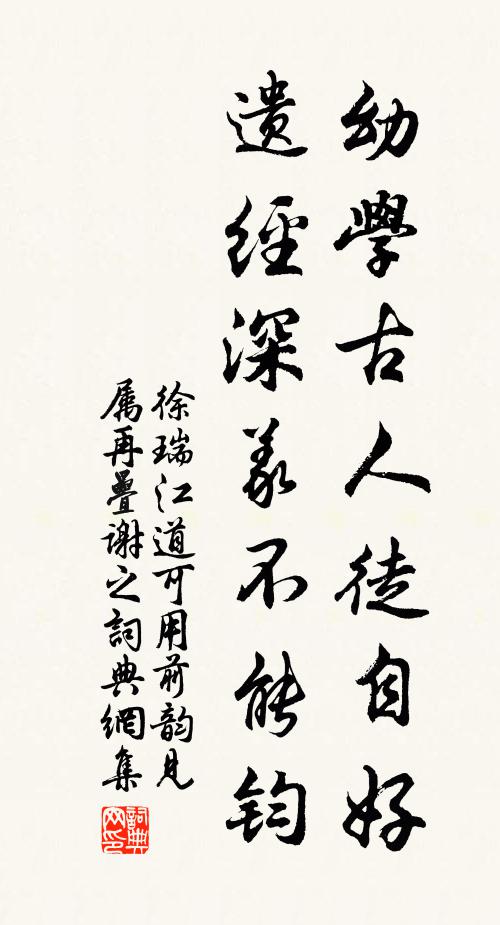 幼學古人徒自好
遺經深義不能鈞
徐瑞江道可用前韵見
属再疊謝之詞典網集
詞典
网印